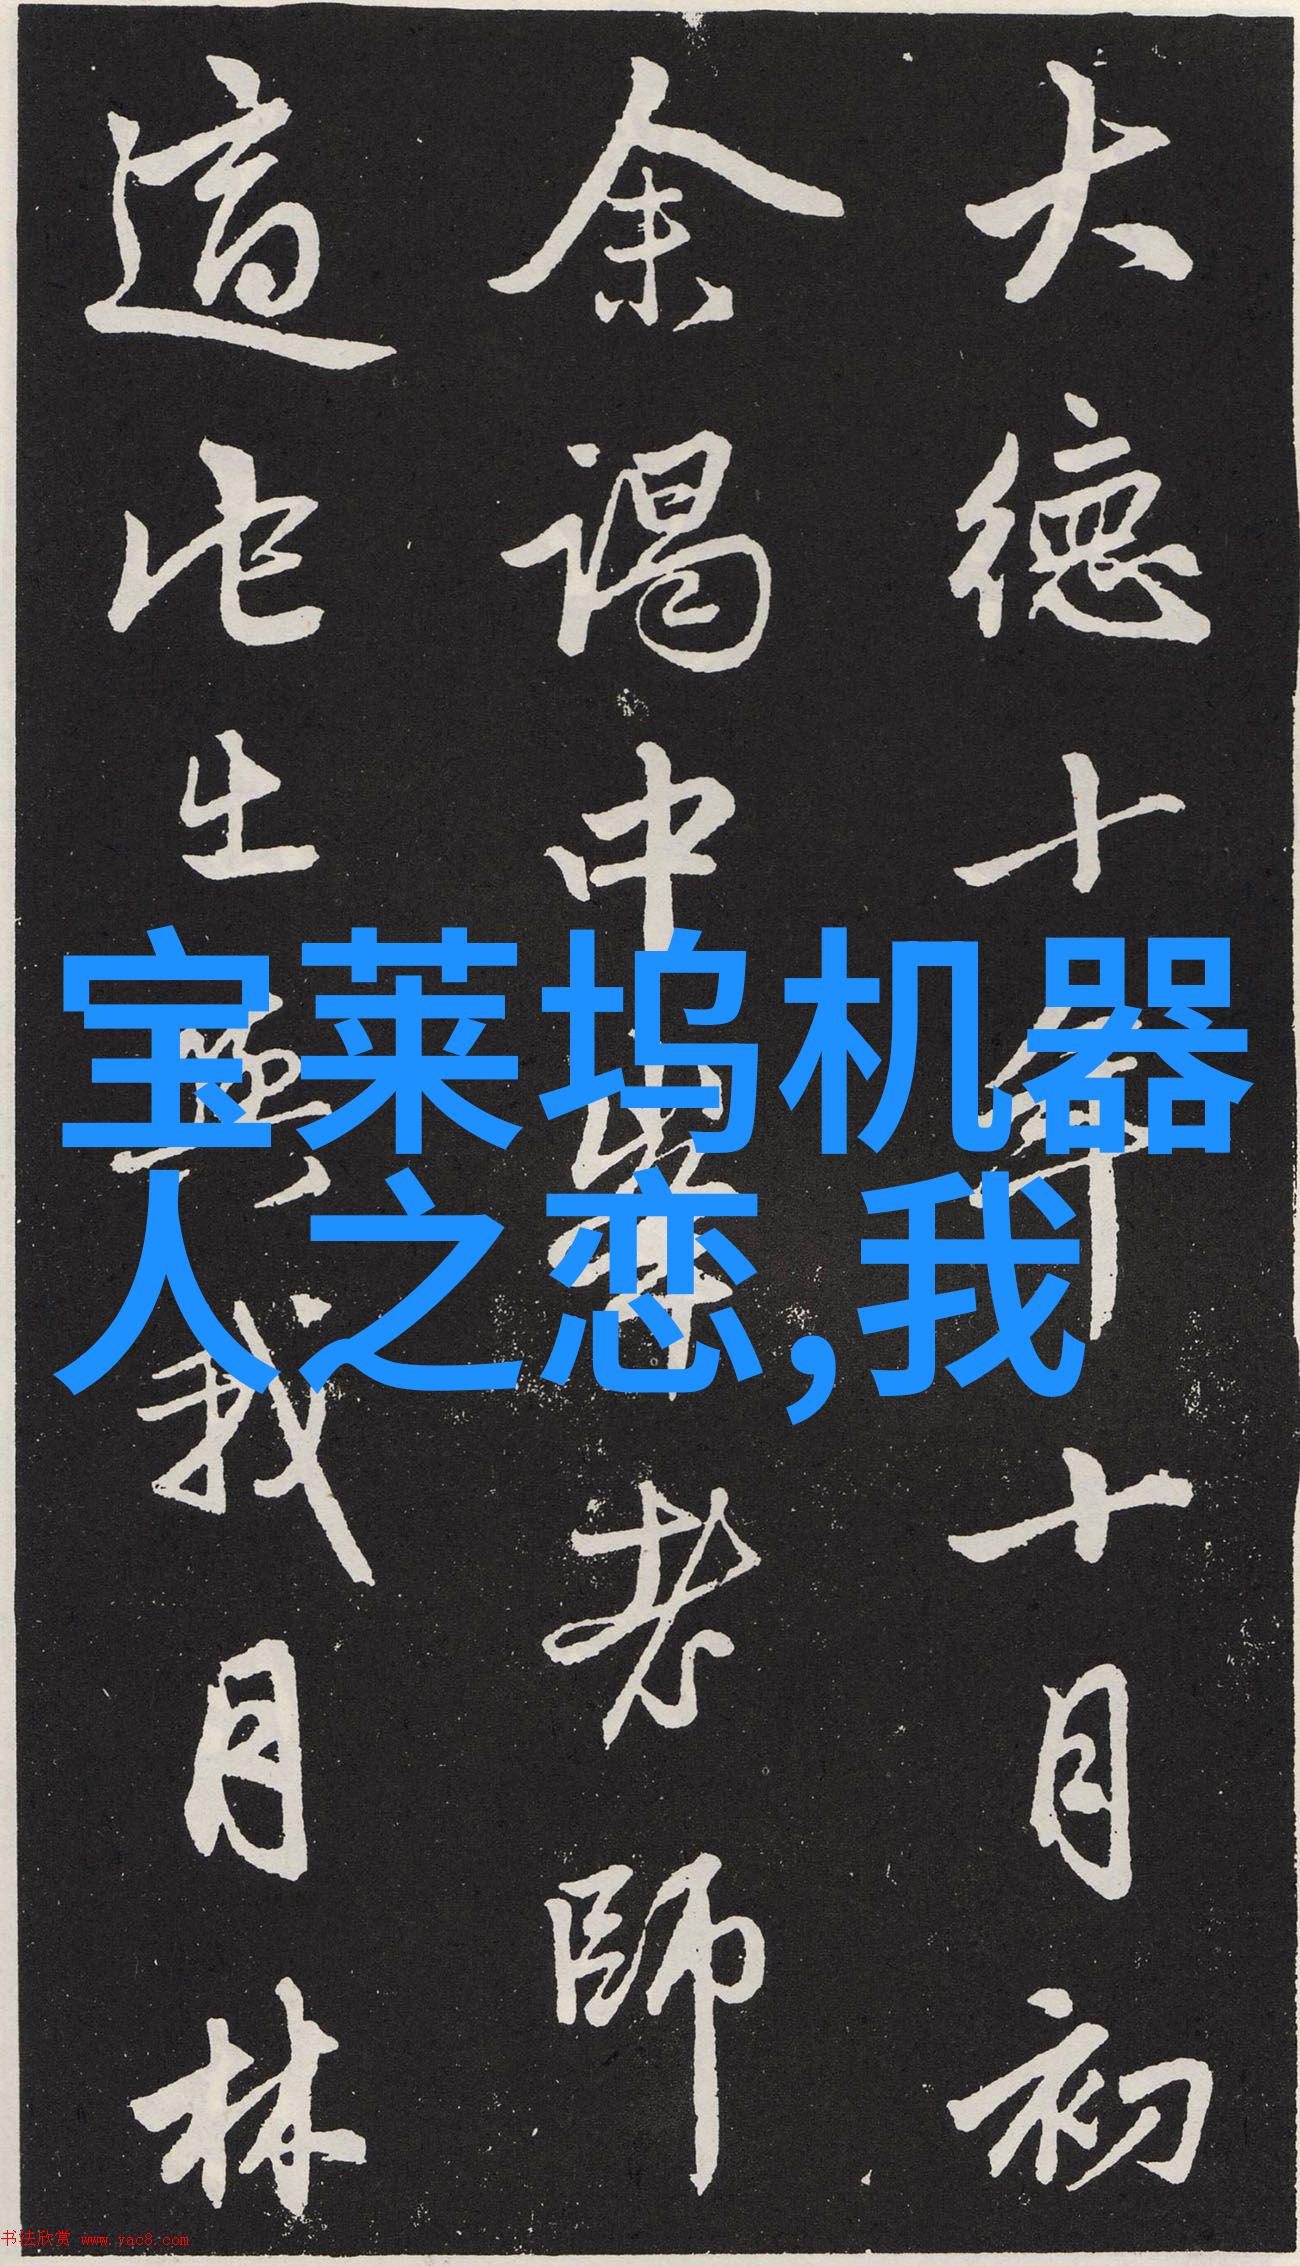 大德十年十月初
余谒中峯老師
適它出與我月林
宝莱坞机器
人之恋,我
书法欣赏 www.yac8.com